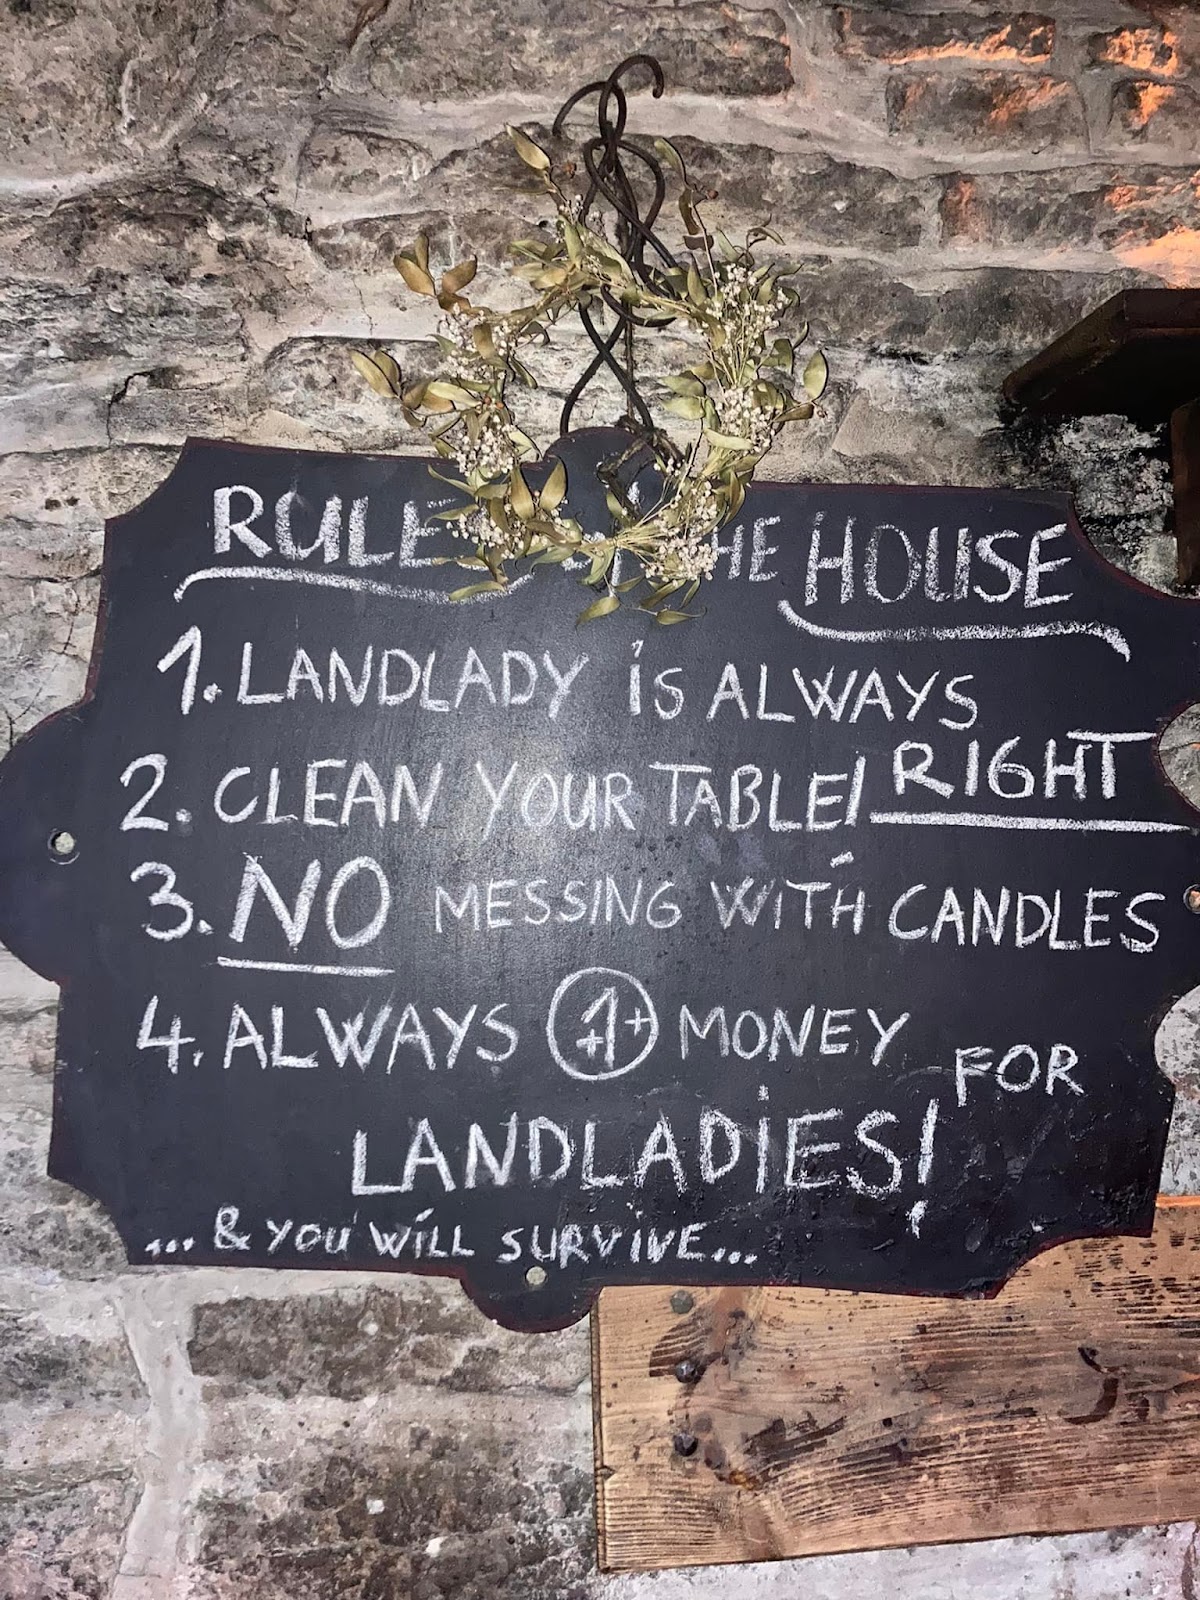 RULE THE HOUSE
1. LANDLADY iS ALWAYS RIGHT
2. CLEAN YOUR TABLE!
3. NO MESSING WiTH CANDLES
4. ALWAYS +1+ MONEY FOR
LANDLADiES!
... & YOU WiLL SURViVE...